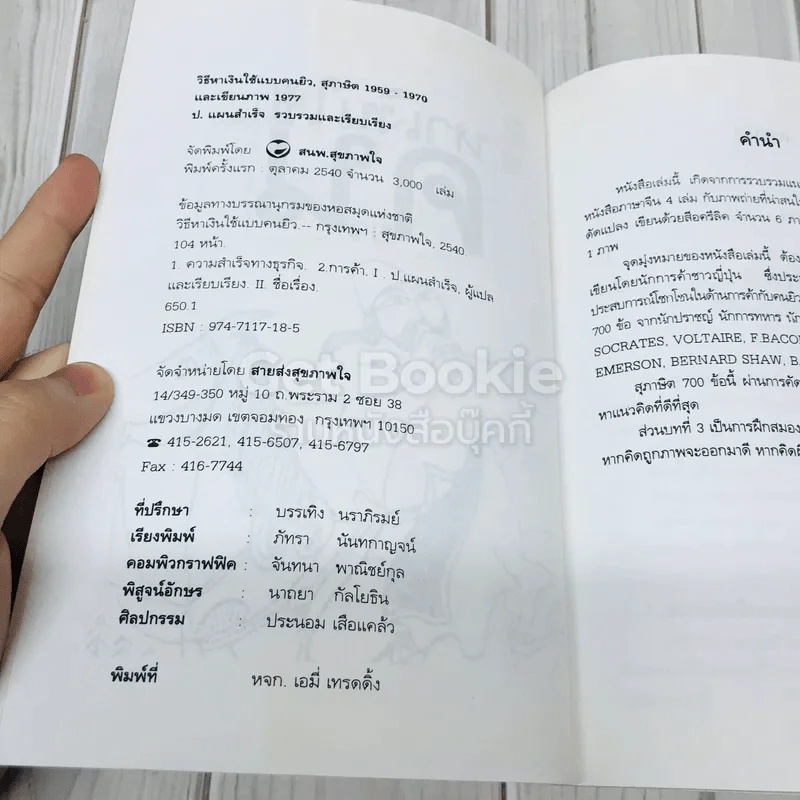 วิธีหาเงินใช้แบบคนยิว, สุภาษิต 1959 - 1970
และเขียนภาพ 1977
ป. แผนสำเร็จ รวบรวมและเรียบเรียง
จัดพิมพ์โดย สนพ.สุขภาพใจ
พิมพ์ครั้งแรก : ตุลาคม 2540 จำนวน 3,000 เล่ม
ข้อมูลทางบรรณานุกรมของหอสมุดแห่งชาติ
วิธีหาเงินใช้แบบคนยิว.-- กรุงเทพฯ : สุขภาพใจ, 2540.
104 หน้า.
1. ความสำเร็จทางธุรกิจ. 2.การค้า. I . ป.แผนสำเร็จ, ผู้แปล
และเรียบเรียง. II. ชื่อเรื่อง.
650.1
ISBN : 974-7117-18-5
จัดจำหน่ายโดย สายส่งสุขภาพใจ
14/349-350 หมู่ 10 ถ.พระราม 2 ซอย 38
แขวงบางมด เขตจอมทอง กรุงเทพฯ 10150
☎ 415-2621, 415-6507, 415-6797
Fax : 416-7744
ที่ปรึกษา : บรรเทิง นราภิรมย์
เรียงพิมพ์ : ภัทรา นันทกาญจน์
คอมพิวกราฟฟิค : จันทนา พาณิชย์กุล
พิสูจน์อักษร : นาถยา กัลโยธิน
ศิลปกรรม : ประนอม เสือแคล้ว
พิมพ์ที่ หจก. เอมี่ เทรดดิ้ง
คำนำ
หนังสือเล่มนี้ เกิดจากการรวบรวมแน
หนังสือภาษาจีน 4 เล่ม กับภาพถ่ายที่น่าสนใ
ดัดแปลง เขียนด้วยสีอครีลิค จำนวน 6 ภา
1 ภาพ
จุดมุ่งหมายของหนังสือเล่มนี้ ต้อง
เขียนโดยนักการค้าชาวญี่ปุ่น ซึ่งประ
ประสบการณ์โชกโชนในด้านการค้ากับคนยิว
700 ข้อ จากนักปราชญ์ นักการทหาร นัก
SOCRATES, VOLTAIRE, F.BACO
EMERSON, BERNARD SHAW, B.
สุภาษิต 700 ข้อนี้ ผ่านการคัด
หาแนวคิดที่ดีที่สุด
ส่วนบทที่ 3 เป็นการฝึกสมอง
หากคิดถูกภาพจะออกมาดี หากคิดผิ
Get Bookie
ร้านหนังสือบุ๊คกี้